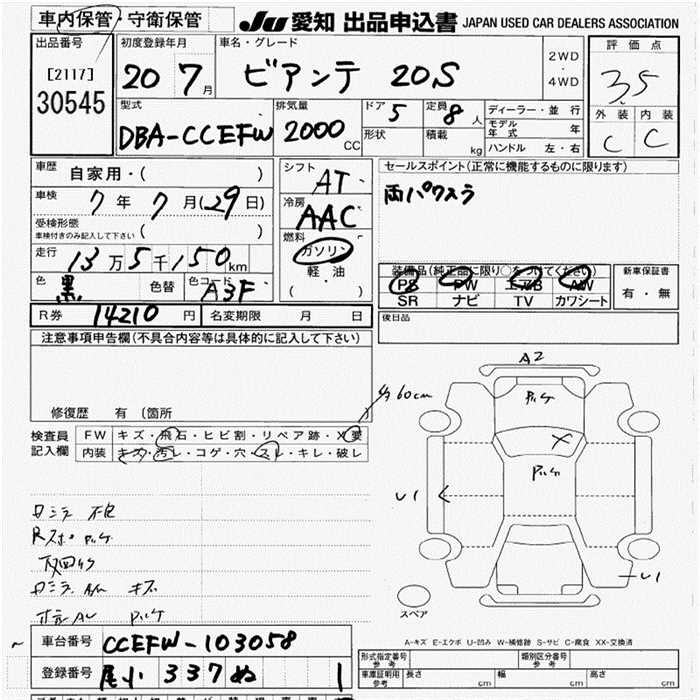 車内保管・守衛保管 Ju 愛知 出品申込書 JAPAN USED CAR DEALERS ASSOCIATION
出品番号 初度登録年月 車名・グレード 評価点
[2117] 20 7月 ビアンテ 20S 2WD・4WD 3.5
30545
型式 排気量 ドア 5 定員 8人 ディーラー・並行 外装 内装
DBA-CCEFW 2000CC 形状 積載 kg モデル年式 年 C C
ハンドル 左・右
車歴 自家用・( ) シフト AT セールスポイント(正常に機能するものに限ります)
車検 7年 7月(29日) 冷房 AAC 両パワスラ
受検形態
車検付きのみ記入して下さい ( ) 燃料
走行 13万5千150km ガソリン 装備品(純正品に限り○をつけてください) 新車保証書
軽油 PS PW エアB AW 有・無
色 黒 色替 色コード A3F ( ) SR ナビ TV カワシート
R券 14210円 名変期限 月 日 後日品
注意事項申告欄(不具合内容等は具体的に記入して下さい)
A2
修復歴 有(箇所 ) 60cm
検査員 FW キズ・飛石・ヒビ割・リペア跡・X要
記入欄 内装 キズ・汚レ・コゲ・穴・スレ・キレ・破レ
U1
U1
スペア
A-キズ E-エクボ U-凹み W-補修跡 S-サビ C-腐食 XX-交換済
車台番号 CCEFW-103058 形式指定番号 参考 類別区分番号 参考
登録番号 尾小 337 ぬ 1 車庫証明用 参考 長さ cm 幅 cm 高さ cm